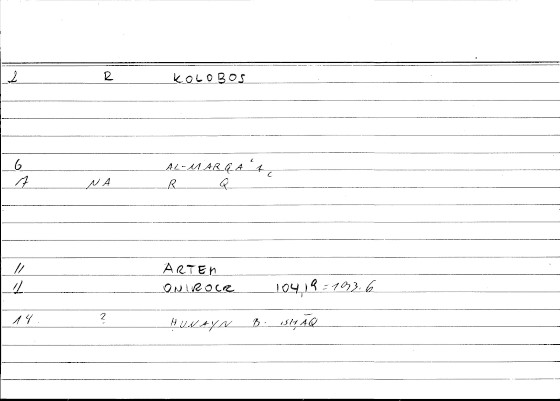 2 R KOLOBOS
6 AL-MARQA‘A
7 NA R Q
11 ARTEM
12 ONIROCR 104,19 = 193.6
14 ? ḤUNAYN B. ISḤĀQ